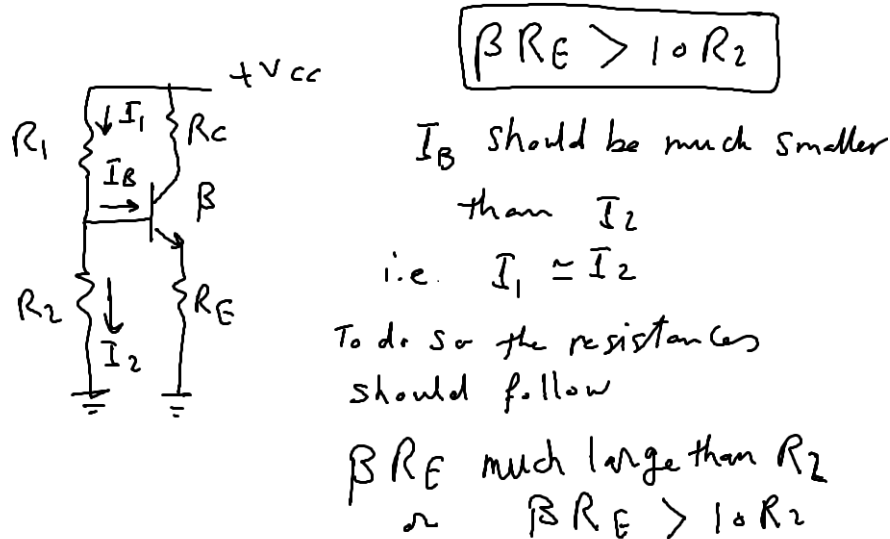 βR_E > 10R_2
+Vcc
I_1
R_1
R_C
I_B
β
R_2
R_E
I_2
I_B should be much smaller
than I_2
i.e. I_1 ≃ I_2
To do so the resistances
should follow
βR_E much large than R_2
or βR_E > 10R_2